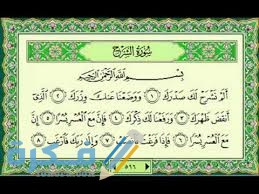 سُورَةُ الشَّرْحِ
بِسْمِ اللَّهِ الرَّحْمَٰنِ الرَّحِيمِ
أَلَمْ نَشْرَحْ لَكَ صَدْرَكَ ١ وَوَضَعْنَا عَنكَ وِزْرَكَ ٢ الَّذِي
أَنقَضَ ظَهْرَكَ ٣ وَرَفَعْنَا لَكَ ذِكْرَكَ ٤ فَإِنَّ مَعَ الْعُسْرِ يُسْرًا ٥ إِنَّ
مَعَ الْعُسْرِ يُسْرًا ٦ فَإِذَا فَرَغْتَ فَانصَبْ ٧ وَإِلَىٰ رَبِّكَ فَارْغَب ٨
فكرة
٥٩٦